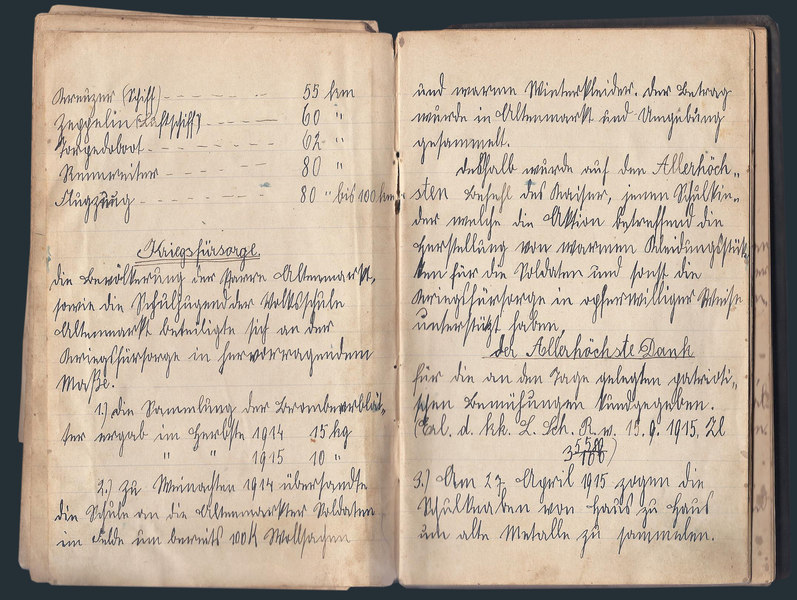 Kreuzer (Schiff) - - - - - - 55 km
Zeppelin (Luftschiff) - - - - 60 "
Torpedoboot - - - - - - 62 "
Rennreiter - - - - - - 80 "
Flugzeug - - - - - - 80 " bis 100 km
Kriegsfürsorge.
Die Bevölkerung der Pfarre Altenmarkt,
sowie die Schuljugend der Volksschule
Altenmarkt beteiligte sich an der
Kriegsfürsorge in hervorragendem
Maße.
1.) Die Sammlung der Brombeerblät-
ter ergab im Herbste 1914 15 kg
" " 1915 10 "
2.) Zu Weinachten 1914 übersandte
die Schule an die Altenmarkter Soldaten
im Felde um bereits 100 K Wollsachen
und warme Winterkleider. Der Betrag
wurde in Altenmarkt und Umgebung
gesammelt.
Deshalb wurde auf den Allerhöch-
sten Befehl des Kaiser, jenen Schulkin-
der welche die Aktion betreffend die
Herstellung von warmen Kleidungsstük-
ken für die Soldaten und sonst die
Kriegsfürsorge in opferwilliger Weise
unterstützt haben,
Der Allerhöchste Dank
für die an den Tage gelegten patrioti-
schen Bemühungen kundgegeben.
(Erl. d. kk. L. Sch. R. v. 15.9.1915, Zl
3)
3.) Am 27 April 1915 zogen die
Schulknaben von Haus zu Haus
um alte Metalle zu sammelen.